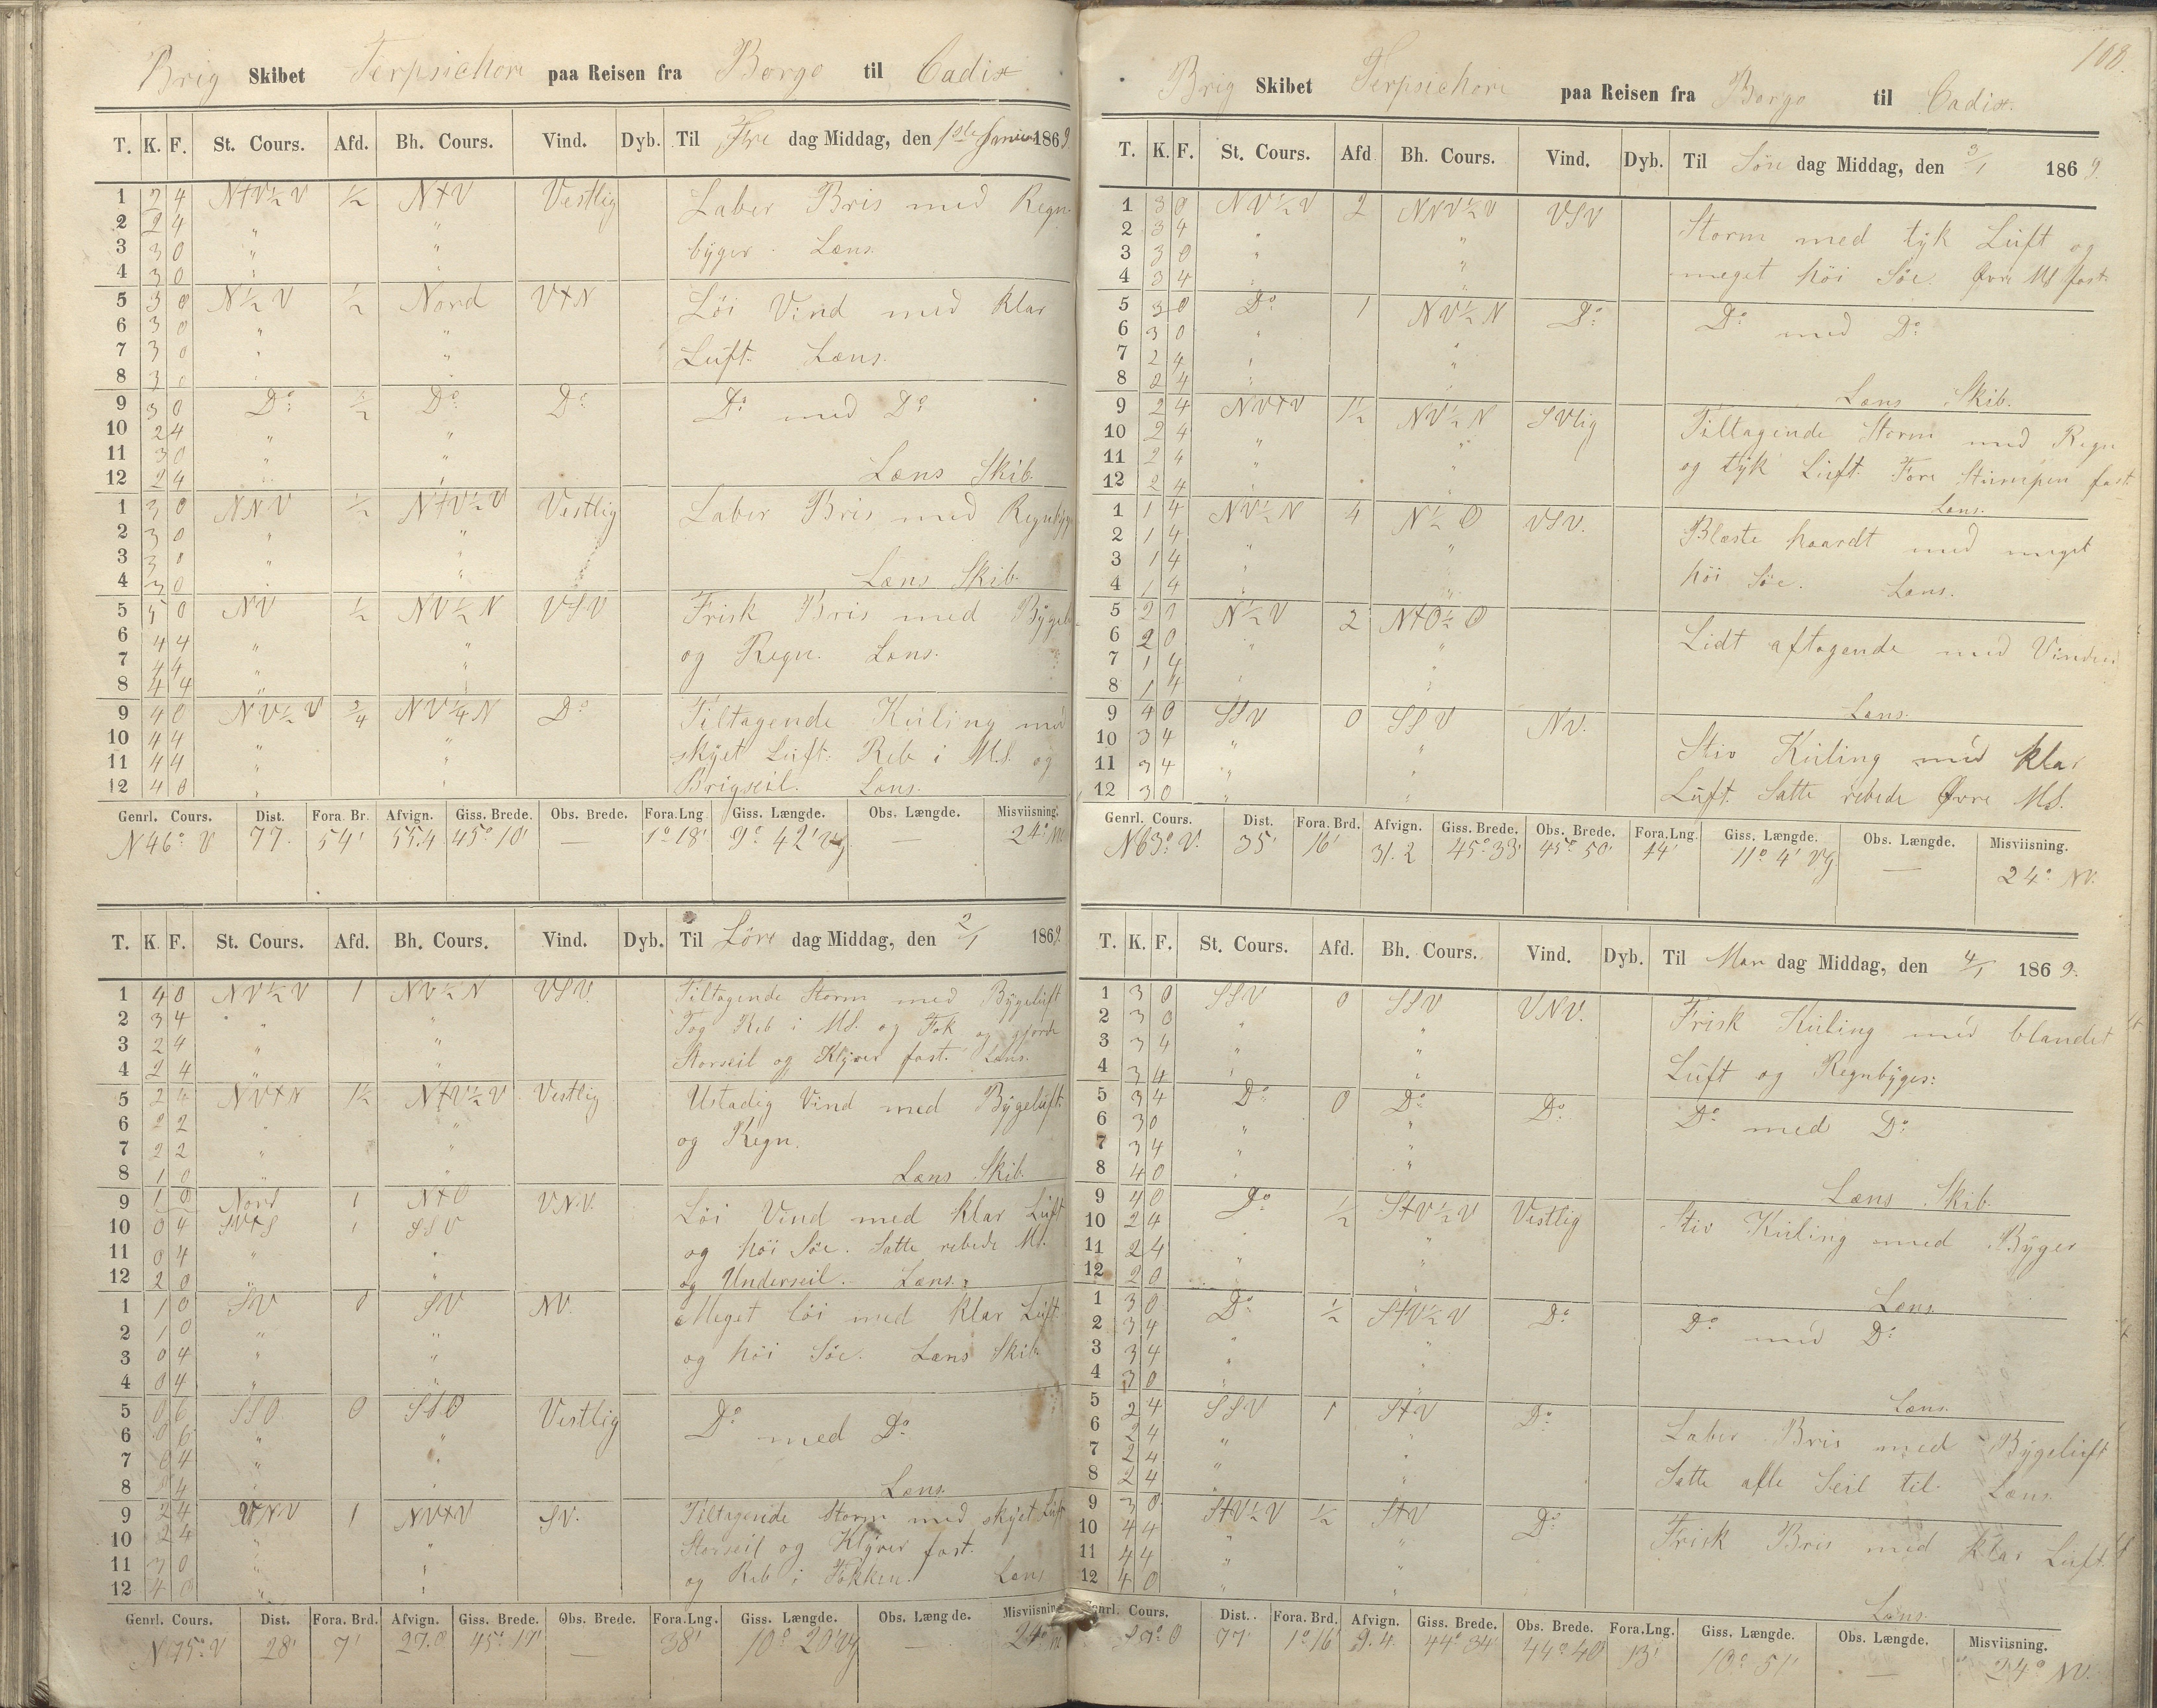 Brig Skibet Terpsichore paa Reisen fra Borgo til Cadix
T. K. F. St. Cours. Afd. Bh. Cours. Vind. Dyb. Til Fre dag Middag, den 1ste Januar 1869
1 2 4 N+V½V ½ N+V Vestlig Laber Bris med Regn
2 2 4 " " byger. Læns.
3 3 0 " "
4 3 0 " "
5 3 0 N½V ½ Nord V+N Løi Vind med klar
6 3 0 " "
7 3 0 " " Luft. Læns.
8 3 0 " "
9 3 0 Do ½ Do Do Do med Do
10 2 4 " "
11 3 0 " "
12 2 4 " " Læns Skib.
1 3 0 NNV ½ N+V½V Vestlig Laber Bris med Regnbyg
2 3 0 " "
3 3 0 " "
4 3 0 " " Læns Skib.
5 5 0 NV ½ NV½N VSV Frisk Bris med Bygel
6 4 4 " "
7 4 4 " " og Regn. Læns.
8 4 4 " "
9 4 0 NV½V ¾ NV¼N Do Tiltagende Kuling med
10 4 4 " " skyet Luft. Reb i MS. og
11 4 4 " "
12 4 0 " " Brigseil. Læns.
Genrl. Cours. Dist. Fora. Br. Afvign. Giss. Brede. Obs. Brede. Fora. Lng Giss. Længde. Obs. Længde. Misviisning.
N46°V 77. 54' 55.4 45°10' — 1°18' 9°42' Vg — 24° NV
T. K. F. St. Cours. Afd. Bh. Cours. Vind. Dyb. Til Løve dag Middag, den 2/1 1869.
1 4 0 NV½V 1 NV½N VSV. Tiltagende Storm med Bygeluft
2 3 4 " " Tog Reb i MS. og Fok og gjorde
3 2 4 " " Storseil og Klyver fast. Læns.
4 2 4 " "
5 2 4 NV+N 1½ N+V½V Vestlig Ustadig Vind med Bygeluft
6 2 2 " " og Regn.
7 2 2 " "
8 1 0 " " Læns Skib.
9 1 0 Nord 1 N+O VNV. Løi Vind med klar Luft
10 0 4 SV+S 1 SSV og høi Söe. Satte rebede MS.
11 0 4 " "
12 2 0 " " og Underseil. Læns.
1 1 0 SV 0 SV NV. Meget løi med klar Luft
2 1 0 " "
3 0 4 " " og høi Söe. Læns Skib.
4 0 4 " "
5 0 6 SSO 0 SSO Vestlig Do med Do
6 0 6 " "
7 0 4 " "
8 0 4 " " Læns.
9 2 4 VNV 1 NV+V SV. Tiltagende Storm med skyet Luft
10 2 4 " " Storseil og Klyver fast.
11 3 0 " "
12 4 0 " " og Reb i Fokken. Læns
Genrl. Cours. Dist. Fora. Brd. Afvign. Giss. Brede. Obs. Brede. Fora. Lng. Giss. Længde. Obs. Længde. Misviisning
N75°V 28' 7' 27.0 45°17' — 38' 10°20' Vg — 24° NV
108.
Brig Skibet Terpsichore paa Reisen fra Borgo til Cadix.
T. K. F. St. Cours. Afd Bh. Cours. Vind. Dyb. Til Søn dag Middag, den 3/1 1869.
1 3 0 NV½V 2 NNV½V VSV Storm med tyk Luft og
2 3 4 " "
3 3 0 " " meget høi Söe. Øvre MS fast.
4 3 4 " "
5 3 0 Do 1 NV½N Do Do med Do
6 3 0 " "
7 2 4 " "
8 2 4 " " Læns Skib.
9 2 4 NV+V 1½ NV½N SVlig Tiltagende Storm med Regn
10 2 4 " "
11 2 4 " " og tyk Luft. Fore fast
12 2 4 " " Læns.
1 1 4 NV½N 4 N½O VSV. Blæste haardt med meget
2 1 4 " "
3 1 4 " " høi Söe. Læns.
4 1 4 " "
5 2 0 N½V 2 N+O½O Lidt aftagende med Vinden
6 2 0 " "
7 1 4 "
8 1 4 " Læns.
9 4 0 SSV 0 SSV NV. Stiv Kuling med klar
10 3 4 " "
11 3 4 " " Luft. Satte rebede Øvre MS.
12 3 0 " "
Genrl. Cours. Dist. Fora. Brd. Afvign. Giss. Brede. Obs. Brede. Fora. Lng. Giss. Længde. Obs. Længde. Misviisning.
N63°V. 35' 16' 31.2 45°33' 45°50' 44' 11°4' Vg — 24° NV.
T. K. F. St. Cours. Afd. Bh. Cours. Vind. Dyb. Til Man dag Middag, den 4/1 1869.
1 3 0 SSV 0 SSV VNV. Frisk Kuling med blandet
2 3 0 " "
3 3 4 " " Luft og Regnbyger:
4 3 4 " "
5 3 4 Do 0 Do Do Do med Do
6 3 0 " "
7 3 4 " "
8 4 0 " " Læns Skib.
9 4 0 Do ½ S+V½V Vestlig Stiv Kuling med Byger
10 2 4 " "
11 2 4 " "
12 2 0 " " Læns.
1 3 0 Do ½ S+V½V Do Do med Do
2 3 4 " "
3 3 4 " "
4 3 0 " " Læns.
5 2 4 SSV 1 S+V Do Laber Bris med Bygeluft
6 2 4 " "
7 2 4 " " Satte alle Seil til. Læns
8 2 4 "
9 3 0 S+V½V ½ S+V Do Frisk Bris med klar Luft.
10 4 4 " "
11 4 4 " "
12 4 0 " " Læns.
Genrl. Cours. Dist. Fora. Brd. Afvign. Giss. Brede. Obs. Brede. Fora. Lng. Giss. Længde. Obs. Længde. Misviisning.
S7°O 77' 1°16' 9.4 44°34' 44°40' 13' 10°51' — 24° NV.